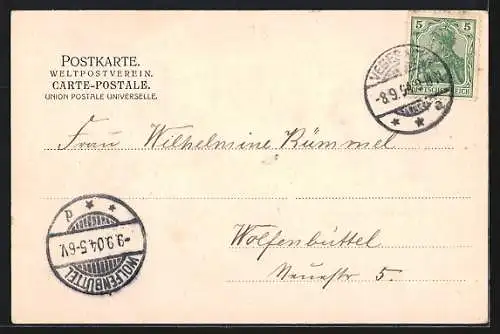 POSTKARTE.
WELTPOSTVEREIN.
CARTE-POSTALE.
UNION POSTALE UNIVERSELLE.
5 5
-8.9.04
Frau Wilhelmine Rümmel
Wolfenbüttel
Neuestr 5.
p
-9.9.04.5-6V.
WOLFENBÜTTEL